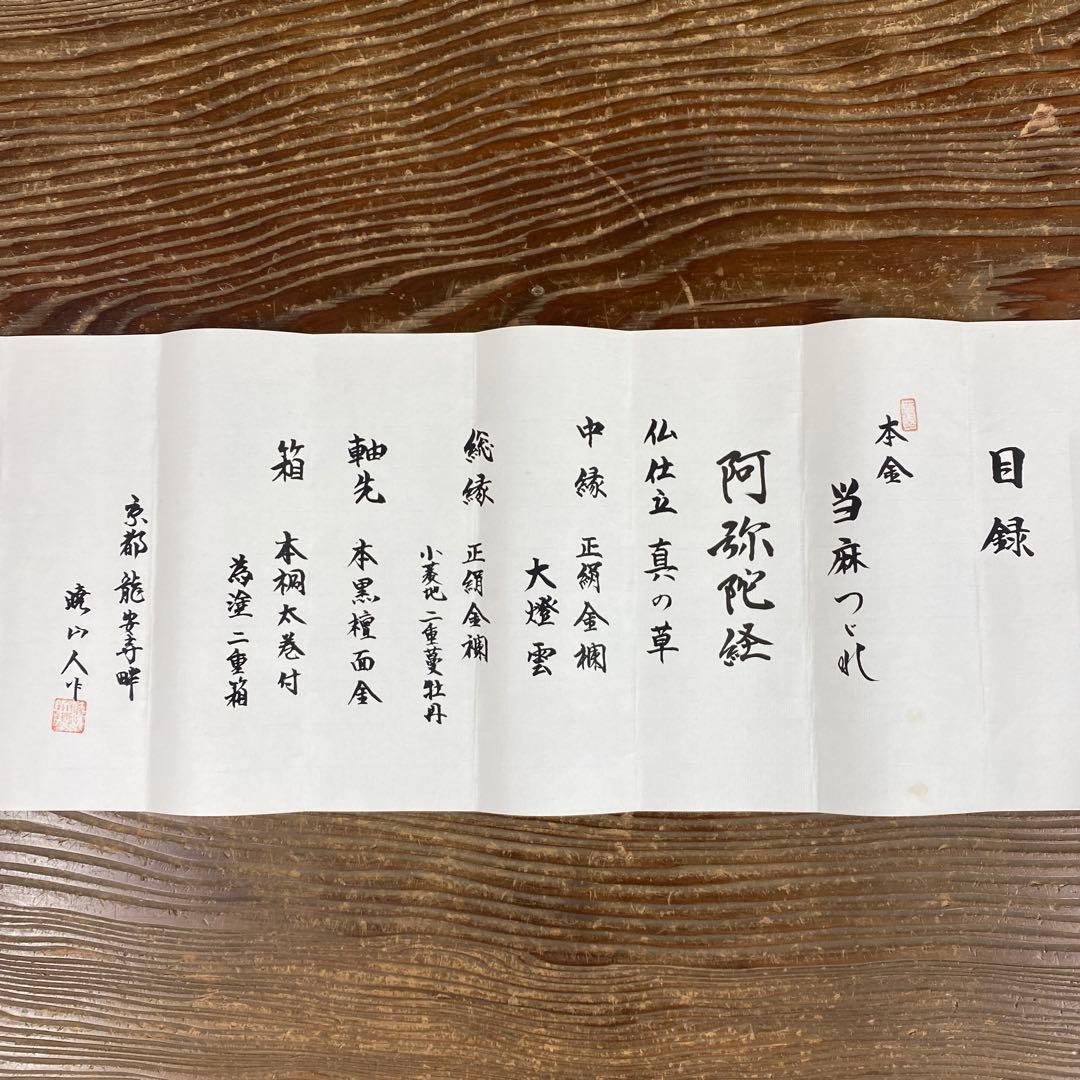 目録
本金
当麻つゞれ
阿弥陀経
仏仕立 真の草
中縁 正絹金襴
大燈雲
総縁 正絹金襴
小菱地二重蔓牡丹
軸先 本黒檀面金
箱 本桐太巻付
為塗二重箱
京都 龍安寺畔
山人作